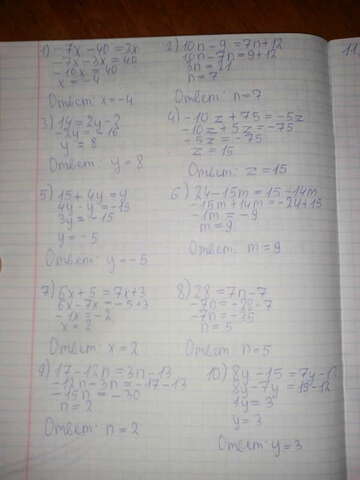 1) -7x -40 = 3x
-7x-3x = 40
-10x = 40
x = -4
Ответ: x = -4
2) 10n - 9 = 7n+12
10n - 7n = 9+12
3n = 21
n = 7
Ответ: n = 7
3) 14 = 2y - 2
-2y = -16
y = 8
Ответ: y = 8
4) -10 z + 75 = -5z
-10z + 5z = -75
-5z = -75
z = 15
Ответ: z = 15
5) 15 + 4y = y
4y - y = -15
3y = -15
y = -5
Ответ: y = -5
6) 24-15m = 15 -14m
-15m+14m = -24+15
-1m = -9
m = 9
Ответ: m = 9
7) 6x + 5 = 7x+3
6x - 7x = -5+3
-1x = -2
x = 2
Ответ: x = 2
8) 28 = 7n - 7
-7n = -28-7
-7n = -35
n = 5
Ответ: n = 5
9) 17 - 12n = 3n - 13
-12n - 3n = -17-13
-15n = -30
n = 2
Ответ: n = 2
10) 8y - 15 = 7y -
8y - 7y = 15-12
1y = 3
y = 3
Ответ: y = 3
11